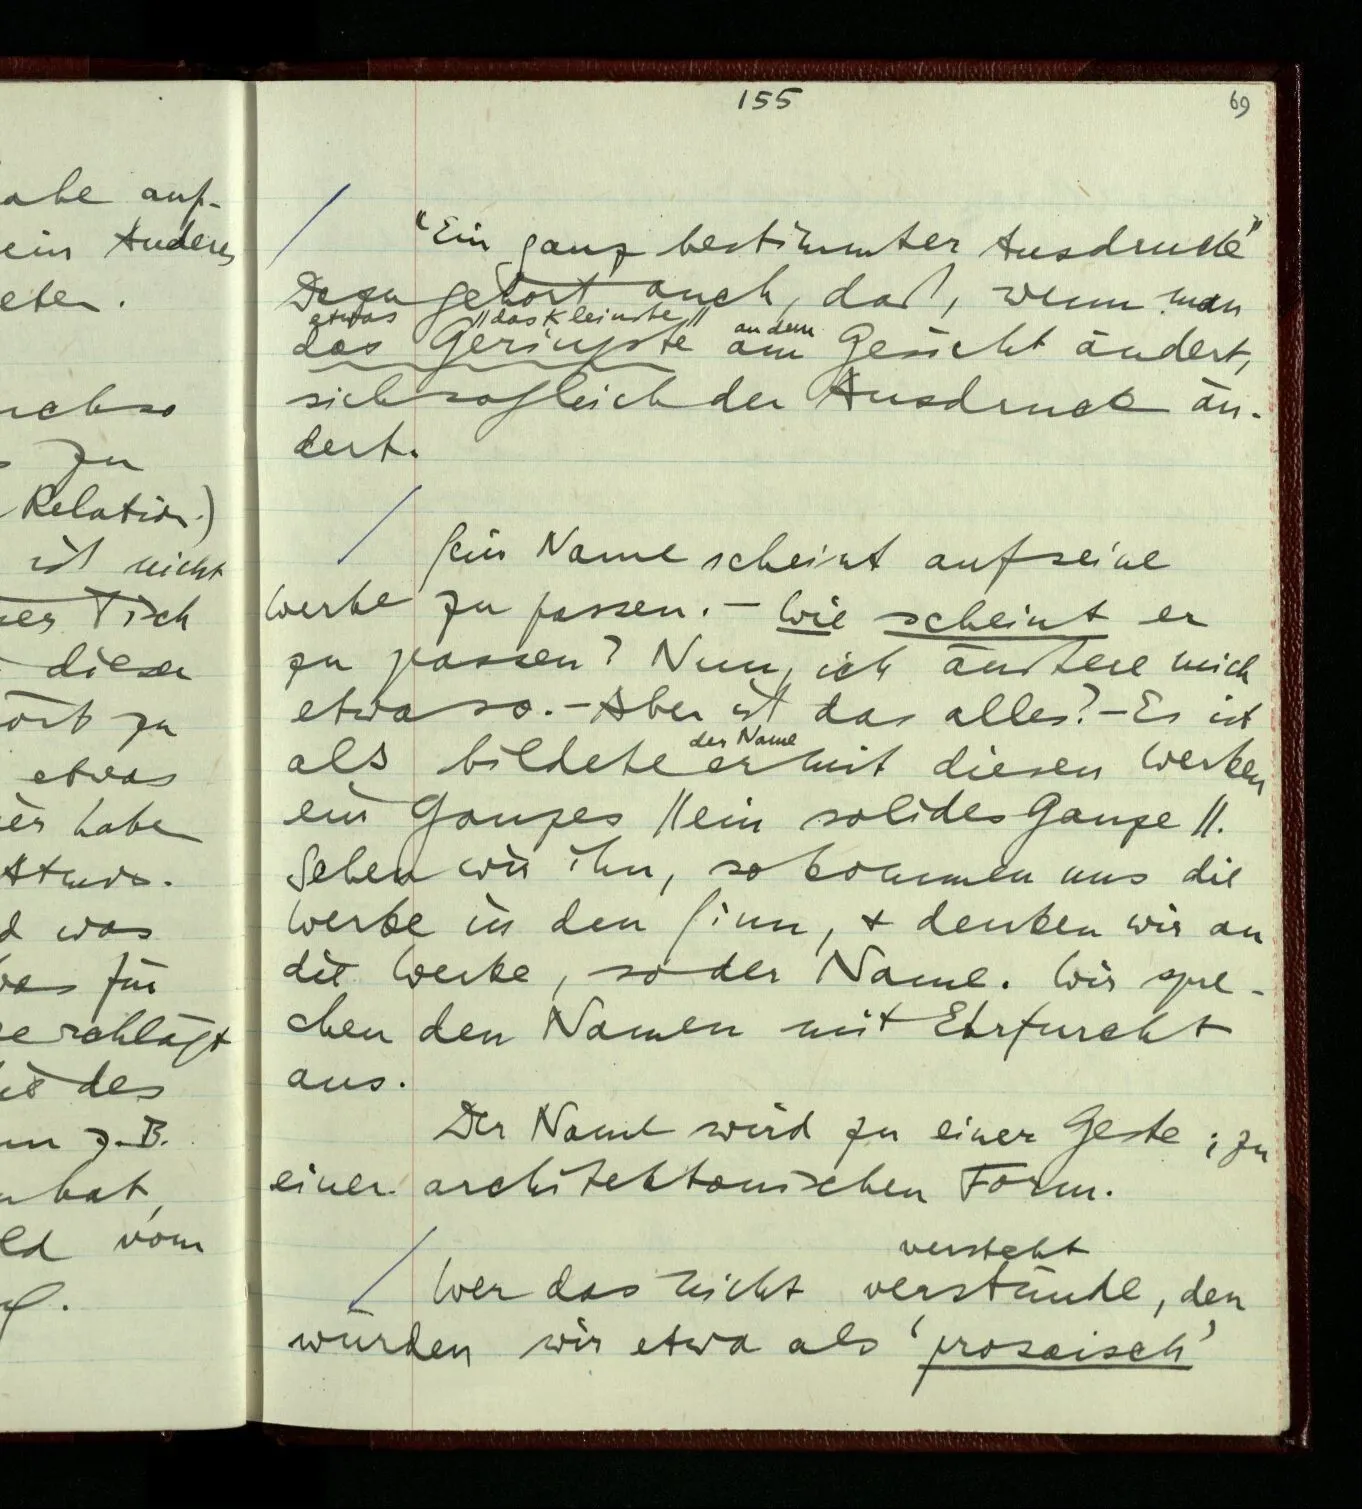 abe auf-
ein Anderes
eten.
zu
Relation.)
ist nicht
ser Tisch
dieser
ört zu
etwas
ier habe
was
für
schlägt
des
z.B.
hat,
ld vom
155
69
"Ein ganz bestimmter Ausdruck"
Dazu gehört auch, daß, wenn man
etwas //das kleinste// an dem
das Geringste am Gesicht ändert,
sich sogleich der Ausdruck än-
dert.
Sein Name scheint auf seine
Werke zu passen. – Wie scheint er
zu passen? Nun, ich äußere mich
etwa so. – Aber ist das alles? – Es ist
der Name
als bildete er mit diesen Werken
ein Ganzes //ein solides Ganze//.
Sehen wir ihn, so kommen uns die
Werke in den Sinn, & denken wir an
die Werke, so der Name. Wir spre-
chen den Namen mit Ehrfurcht
aus.
Der Name wird zu einer Geste; zu
einer architektonischen Form.
versteht
Wer das nicht verstünde, den
würden wir etwa als 'prosaisch'